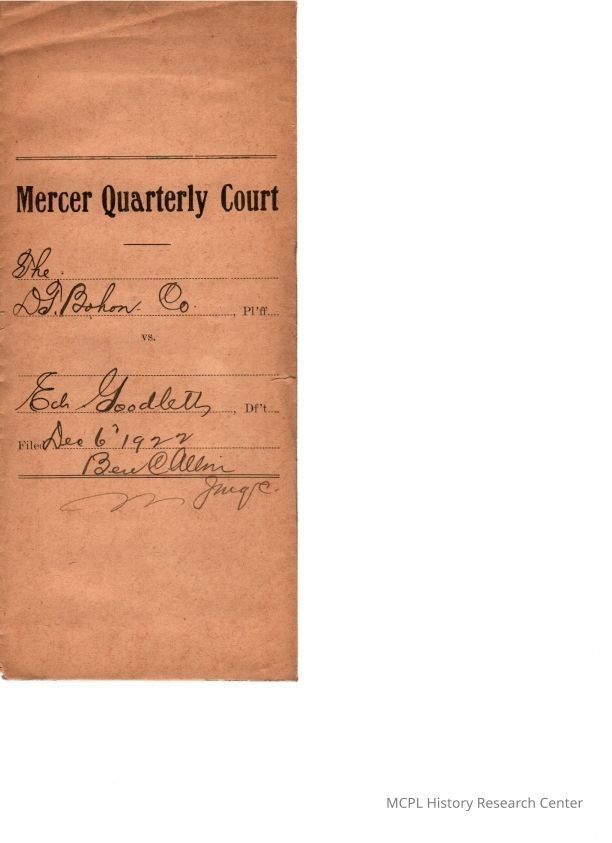 Mercer Quarterly Court
The
D.T. Bohon Co. , Pl'ff.
vs.
Ed Goodlett , Df't.
Filed Dec 6' 1922
Ben C Allin
Judge
MCPL History Research Center